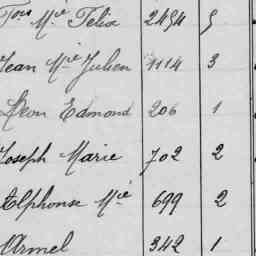 Fois Mie Felix 2494 5
Jean Mie Julien 1114 3
Léon Edmond 206 1
Joseph Marie 702 2
Alphonse Mie 699 2
Armel 342 1